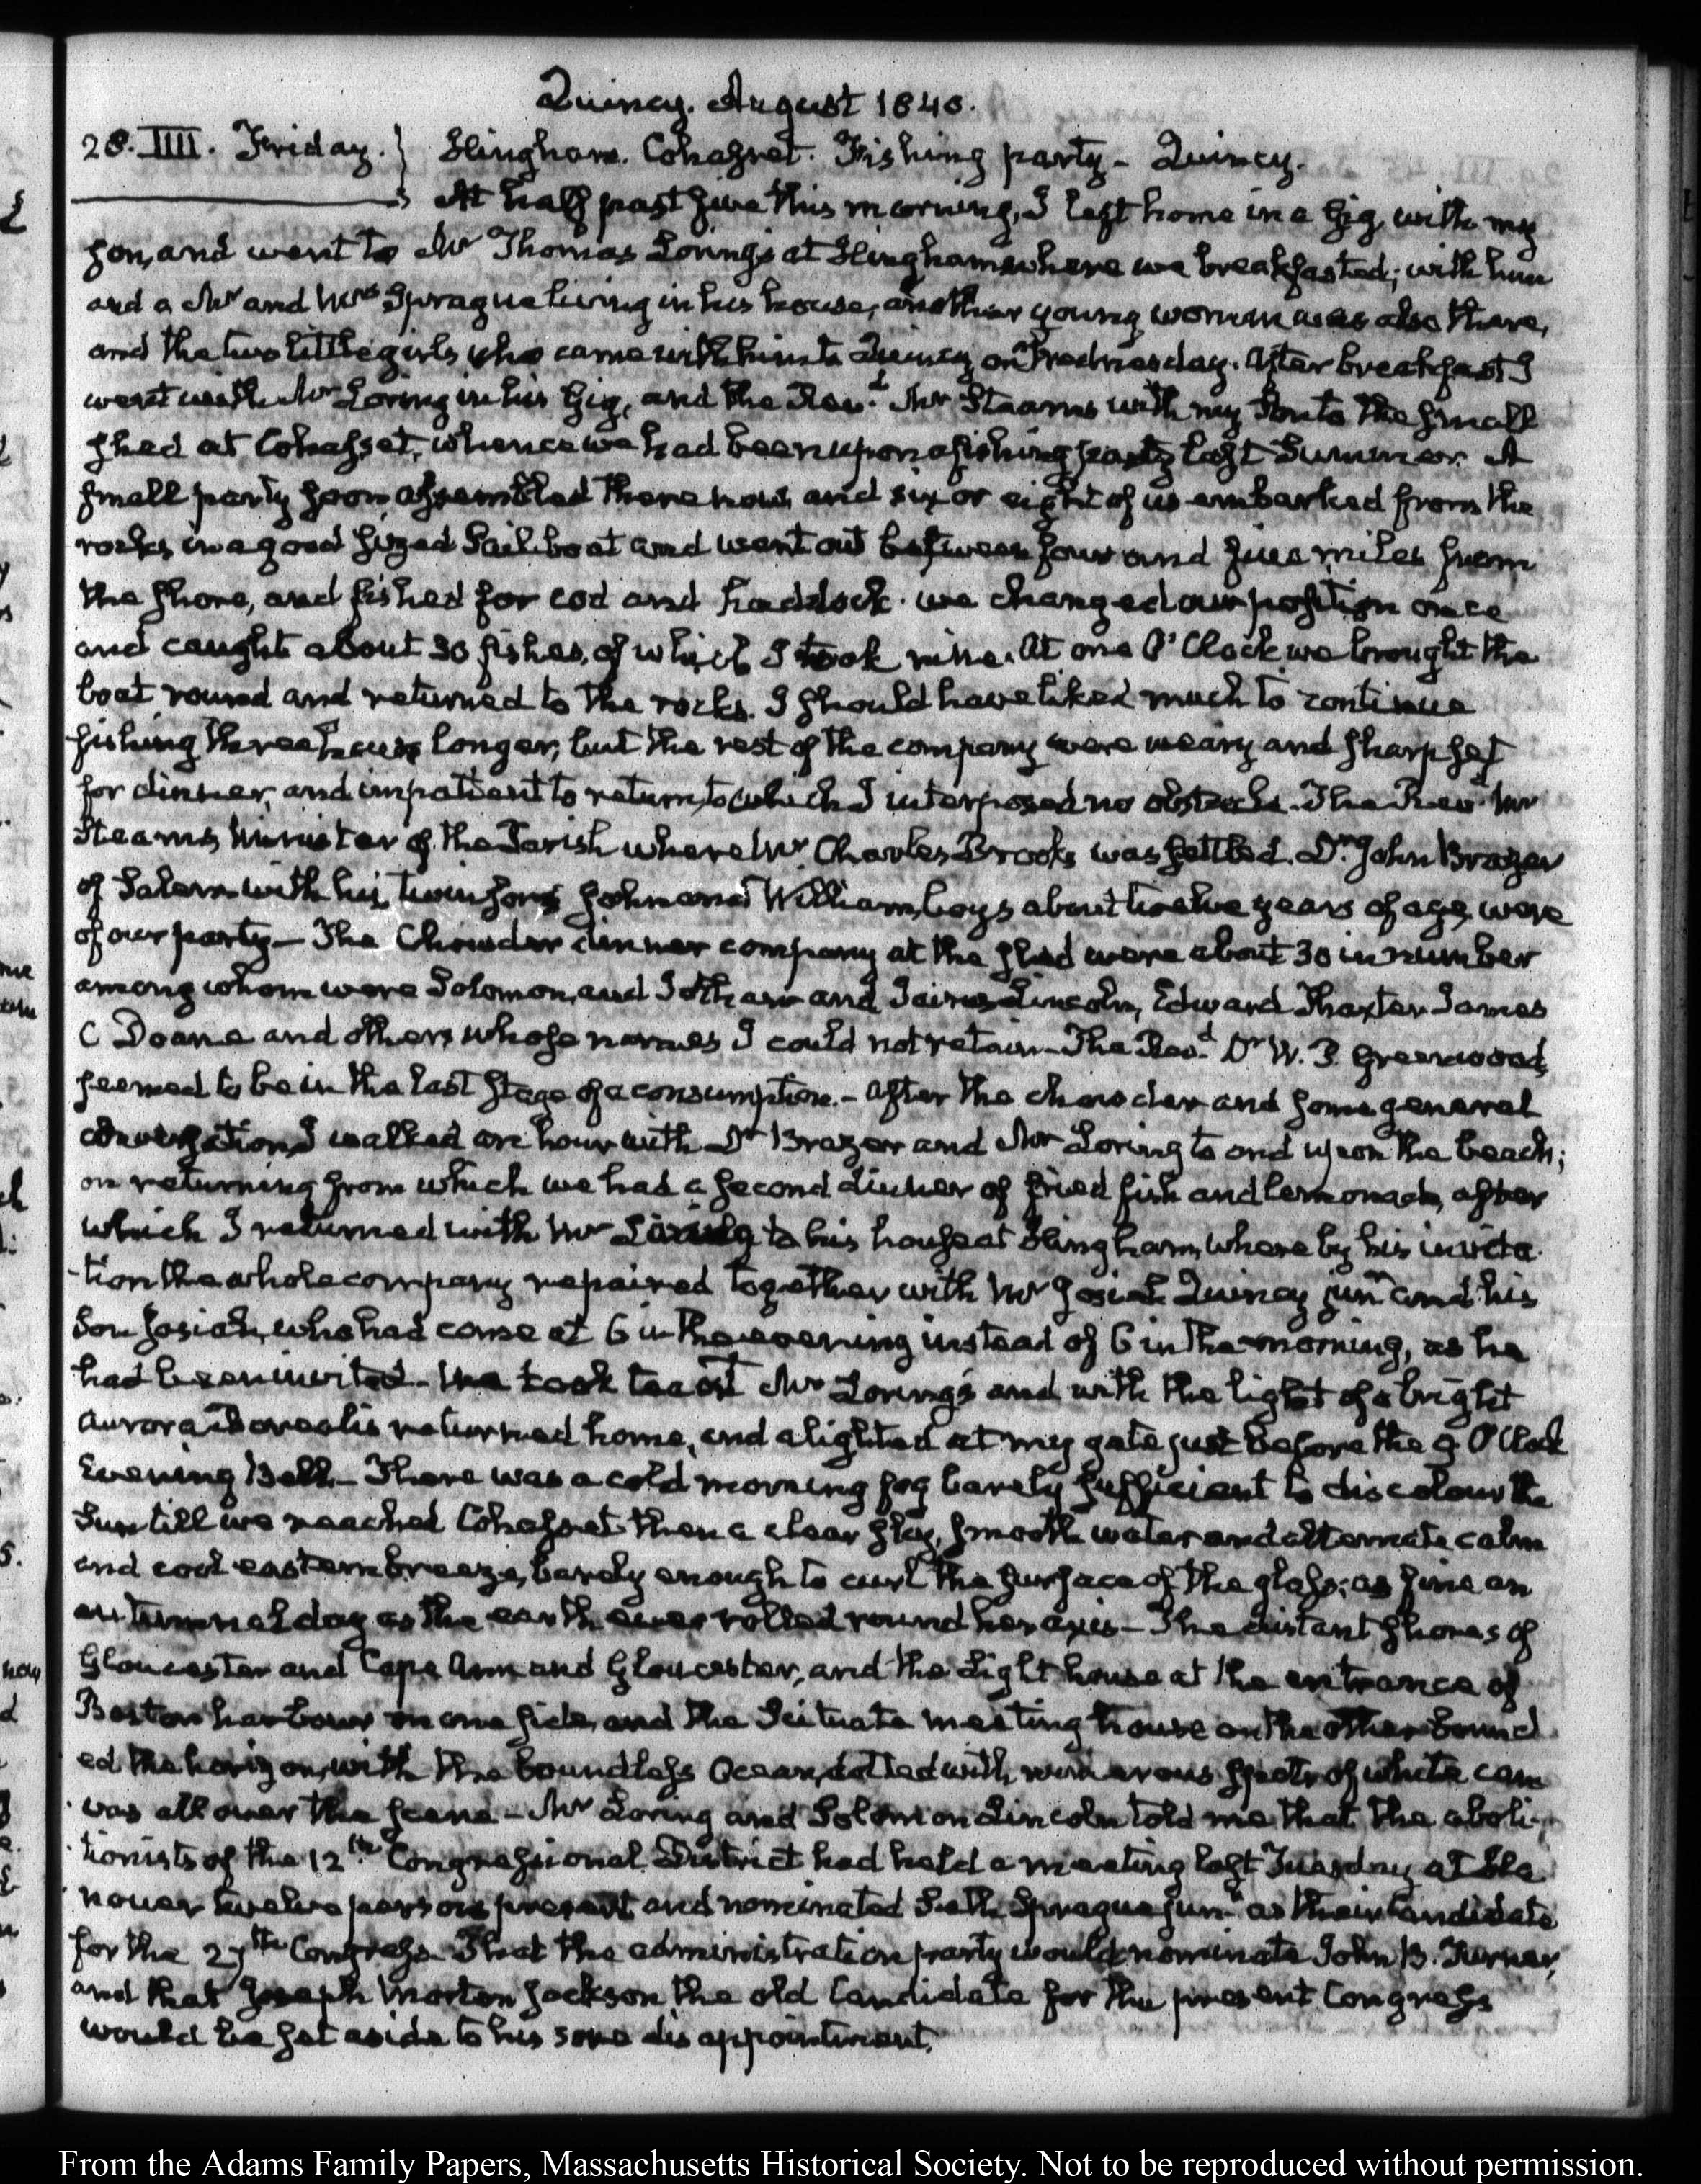 Quincy. August 1840.
28. IIII. Friday. } Hingham. Cohasset. Fishing party – Quincy.
At half past five this morning, I left home in a Gig, with my
son, and went to Mr Thomas Loring's at Hingham where we breakfasted; with him
and a Mr and Mrs Sprague living in his house, another young woman was also there,
and the two little girls who came with him to Quincy on Wednesday. After breakfast I
went with Mr Loring in his Gig, and the Revd. Mr Stearns with my Son to the small
shed at Cohasset, whence we had been upon a fishing party last Summer. A
small party soon assembled there now, and six or eight of us embarked from the
rocks in a good sized Sail boat and went out between four and five miles from
the shore, and fished for cod and haddock. we changed our position once
and caught about 30 fishes, of which I took nine. At one O'Clock we brought the
boat round and returned to the rocks. I should have liked much to continue
fishing three hours longer, but the rest of the company were weary and sharp set
for dinner, and impatient to return, to which I interposed no obstacle. The Revd. Mr
Stearns Minister of the Parish where Mr. Charles Brooks was settled. Dr. John Brazer
of Salem with his twin sons John and William, boys about twelve years of age, were
of our party – The Chowder dinner company at the shed were about 30 in number
among whom were Solomon, and Jotham and Jairus Lincoln, Edward Thaxter James
C Doane and others whose names I could not retain – The Revd. Dr W. P. Greenwood,
seemed to be in the last stage of a consumption. – After the chowder and some general
conversation, I walked an hour with Dr Brazer and Mr Loring to and upon the beach;
on returning from which we had a second dinner of fried fish and lemonade, after
which I returned with Mr Loring to his house at Hingham, where by his invita-
-tion the whole company repaired together with Mr Josiah Quincy junr. and his
Son Josiah, who had come at 6 in the evening instead of 6 in the morning, as he
had been invited – We took tea at Mr Loring's and with the light of a bright
Aurora Borealis returned home, and alighted at my gate just before the 9 O'Clock
Evening Bell – There was a cold morning fog barely sufficient to discolour the
Sun till we reached Cohasset. then a clear sky, smooth water and alternate calm
and cool eastern breeze, barely enough to curl the surface of the glass; as fine an
autumnal day as the earth ever rolled round her axis – The distant shores of
Gloucester and Cape Ann and Gloucester, and the Light house at the entrance of
Boston harbour on one side, and the Scituate meeting house on the other bound
ed the horizon, with the boundless Ocean, dotted with numerous spots of white can
vas all over the scene – Mr Loring and Solomon Lincoln told me that the aboli-
-tionists of the 12th Congressional District had held a meeting last Tuesday at Ha
nover twelve persons present and nominated Seth Sprague junr. as their Candidate
for the 27th Congress. That the administration party would nominate John B. Turner,
and that Joseph Morton Jackson the old Candidate for the present Congress
would be set aside to his sore disappointment.
From the Adams Family Papers, Massachusetts Historical Society. Not to be reproduced without permission.